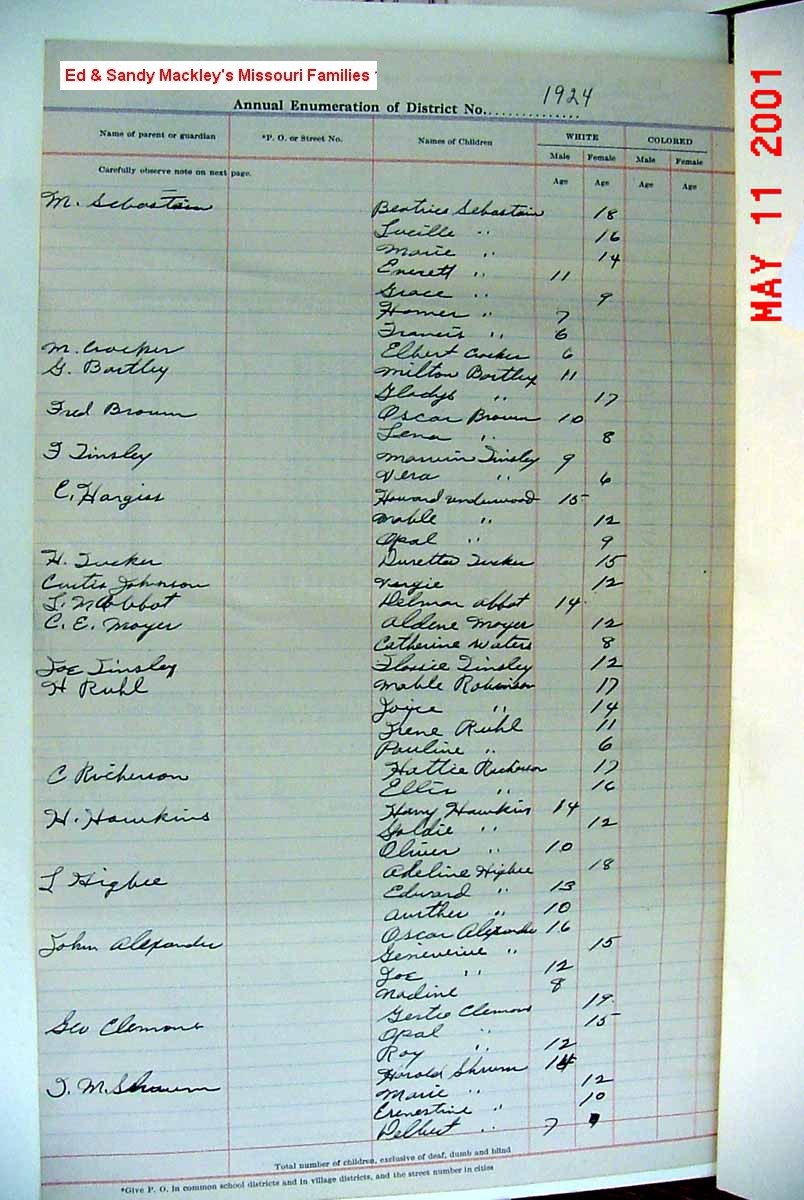 Ed & Sandy Mackley's Missouri Families
MAY 11 2001
Annual Enumeration of District No............... 1924
Name of parent or guardian *P. O. or Street No. Names of Children WHITE COLORED
Male Female Male Female
Carefully observe note on next page. Age Age Age Age
M. Sebastain Beatrice Sebastain 18
Lucille " 16
Marie " 14
Everett " 11
Grace " 9
Homer " 7
Francis " 6
M. Crocker Elbert Crocker 6
G. Bartley Milton Bartley 11
Gladys " 17
Fred Brown Oscar Brown 10
Lena " 8
F Tinsley Marvin Tinsley 9
Vera " 6
C. Hargiss Howard Underwood 15
Mable " 12
Opal " 9
H. Tucker Duretta Tucker 15
Curtis Johnson Vergie 12
Abbot Delmar Abbot 14
C. E. Moyer Aldene Moyer 12
Catherine Waters 8
Joe Tinsley Florice Tinsley 12
H Ruhl Mable Robinson 17
Joyce " 14
Irene Ruhl 11
Pauline " 6
C Richerson Hattie Richerson 17
Ellis " 16
H. Hawkins Harry Hawkins 14
Goldie " 12
Oliver " 10
L Higbee Adeline Higbee 18
Edward " 13
Aurther " 10
John Alexander Oscar Alexander 16
Genevieve " 15
Joe " 12
Nadine 8
Geo Clemons Gertie Clemons 19
Opal " 15
Roy " 12
Harold Shrum 14
M. Shrum Marie " 12
Erenestine " 10
Delbert " 7
Total number of children, exclusive of deaf, dumb and blind
*Give P. O. in common school districts and in village districts, and the street number in cities